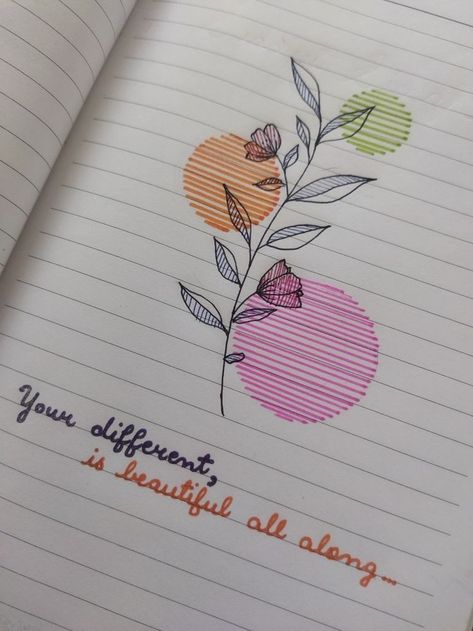 Your different,
is beautiful all along...